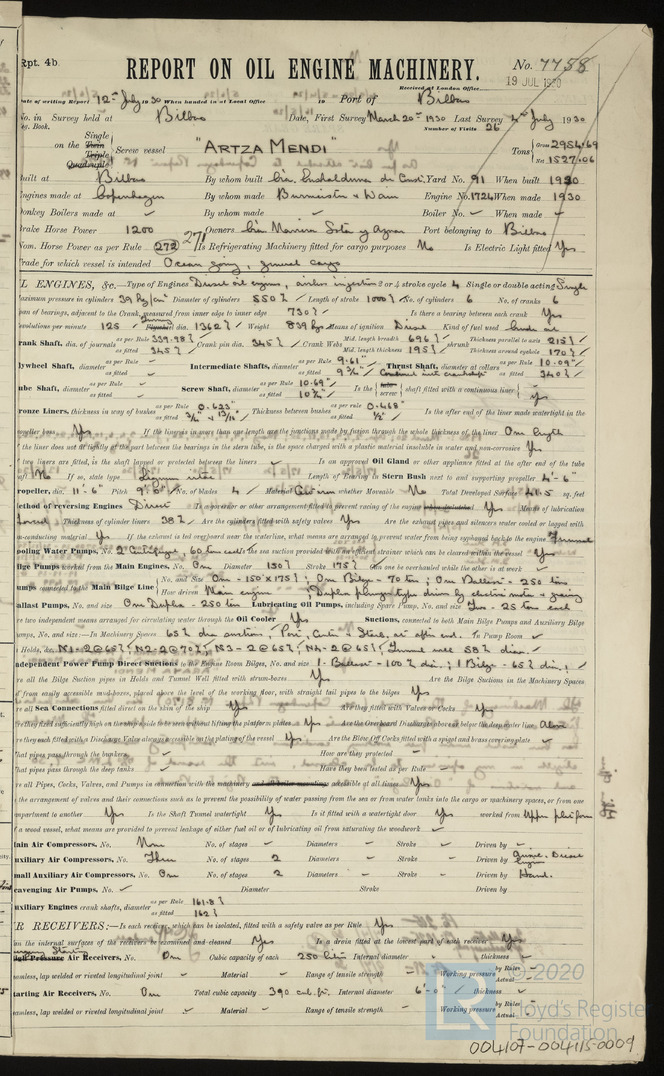 Rpt. 4b.
REPORT ON OIL ENGINE MACHINERY.
No. 7758
Received at London Office 19 JUL 1930
Date of writing Report 12th July 1930 When handed in at Local Office 19 Port of Bilbao
No. in Survey held at Bilbao Date, First Survey March 20th 1930 Last Survey 4th July 1930
Reg. Book. Number of Visits 26
on the Single Twin Triple Quadruple Screw vessel "ARTZA MENDI" Tons Gross 2954.69 Net 1527.06
Built at Bilbao By whom built Yard No. 91 When built 1930
Engines made at Copenhagen By whom made Burmeister & Wain Engine No. 1724 When made 1930
Donkey Boilers made at By whom made Boiler No. When made
Brake Horse Power 1200 Owners Cia Naviera Sota y Aznar Port belonging to Bilbao
Nom. Horse Power as per Rule 272 271 Is Refrigerating Machinery fitted for cargo purposes No Is Electric Light fitted Yes
Trade for which vessel is intended Ocean going, general cargo
OIL ENGINES, &c.—Type of Engines Diesel oil engines, airless injection 2 or 4 stroke cycle 4 Single or double acting Single
Maximum pressure in cylinders Diameter of cylinders 550 Length of stroke 1000 No. of cylinders 6 No. of cranks 6
Span of bearings, adjacent to the Crank, measured from inner edge to inner edge 730 Is there a bearing between each crank Yes
Revolutions per minute 125 Flywheel dia. 1362 Weight 839 kgs Means of ignition Diesel Kind of fuel used Crude oil
Crank Shaft, dia. of journals as per Rule 339.98 as fitted 345 Crank pin dia. 345 Crank Webs Mid. length breadth 696 Mid. length thickness 195 Thickness parallel to axis 215 Thickness around eyehole 170
Flywheel Shaft, diameter as per Rule as fitted Intermediate Shafts, diameter as per Rule 9.61" as fitted 9 3/4" Thrust Shaft, diameter at collars as per Rule 10.09" as fitted 340
Tube Shaft, diameter as per Rule as fitted Screw Shaft, diameter as per Rule 10.69" as fitted 10 3/4" Is the tube screw shaft fitted with a continuous liner Yes
Bronze Liners, thickness in way of bushes as per Rule 0.623" as fitted Thickness between bushes as per rule 0.468" as fitted 1/2" Is the after end of the liner made watertight in the
propeller boss Yes If the liner is in more than one length are the junctions made by fusion through the whole thickness of the liner One length
If the liner does not fit tightly at the part between the bearings in the stern tube, is the space charged with a plastic material insoluble in water and non-corrosive Yes
If two liners are fitted, is the shaft lapped or protected between the liners Is an approved Oil Gland or other appliance fitted at the after end of the tube
shaft No If so, state type Length of Bearing in Stern Bush next to and supporting propeller 4'-6"
Propeller, dia. 11'-6" Pitch No. of blades 4 Material Cast iron whether Moveable No Total Developed Surface 41.5 sq. feet
Method of reversing Engines Direct Is a governor or other arrangement fitted to prevent racing of the engine Yes Means of lubrication
forced Thickness of cylinder liners 38 Are the cylinders fitted with safety valves Yes Are the exhaust pipes and silencers water cooled or lagged with
non-conducting material Yes If the exhaust is led overboard near the waterline, what means are arranged to prevent water from being syphoned back to the engine Funnel
Cooling Water Pumps, No. 2 Centrifugal, 60 tons each Is the sea suction provided with an efficient strainer which can be cleared within the vessel Yes
Bilge Pumps worked from the Main Engines, No. One Diameter 150 Stroke 175 Can one be overhauled while the other is at work
Pumps connected to the Main Bilge Line No. and Size One - 150 x 175; One Bilge - 70 ton; One Ballast - 250 tons
How driven Main engine Duplex plunger type driven by electric motor & gearing
Ballast Pumps, No. and size One Duplex - 250 ton Lubricating Oil Pumps, including Spare Pump, No. and size Two - 25 tons each
Are two independent means arranged for circulating water through the Oil Cooler Yes Suctions, connected to both Main Bilge Pumps and Auxiliary Bilge
Pumps, No. and size:—In Machinery Spaces In Pump Room
In Holds, &c. No 1 - 2 @ 65; No 2 - 2 @ 70; No 3 - 2 @ 65; No 4 - 2 @ 65; Tunnel well 58 dia.
Independent Power Pump Direct Suctions to the Engine Room Bilges, No. and size 1 Ballast - 100 dia.; 1 Bilge - 65 dia.;
Are all the Bilge Suction pipes in Holds and Tunnel Well fitted with strum-boxes Yes Are the Bilge Suctions in the Machinery Spaces
led from easily accessible mud-boxes, placed above the level of the working floor, with straight tail pipes to the bilges Yes
Are all Sea Connections fitted direct on the skin of the ship Yes Are they fitted with Valves or Cocks Yes
Are they fixed sufficiently high on the ship's side to be seen without lifting the platform plates Yes Are the Overboard Discharges above or below the deep water line Above
Are they each fitted with a Discharge Valve always accessible on the plating of the vessel Yes Are the Blow Off Cocks fitted with a spigot and brass covering plate
What pipes pass through the bunkers How are they protected
What pipes pass through the deep tanks Have they been tested as per Rule
Are all Pipes, Cocks, Valves, and Pumps in connection with the machinery accessible at all times Yes
Is the arrangement of valves and their connections such as to prevent the possibility of water passing from the sea or from water tanks into the cargo or machinery spaces, or from one
compartment to another Yes Is the Shaft Tunnel watertight Yes Is it fitted with a watertight door Yes worked from Upper platform
If a wood vessel, what means are provided to prevent leakage of either fuel oil or of lubricating oil from saturating the woodwork
Main Air Compressors, No. None No. of stages Diameters Stroke Driven by
Auxiliary Air Compressors, No. Three No. of stages 2 Diameters Stroke Driven by
Small Auxiliary Air Compressors, No. One No. of stages 2 Diameters Stroke Driven by Hand.
Scavenging Air Pumps, No. Diameter Stroke Driven by
Auxiliary Engines crank shafts, diameter as per Rule 161.8 as fitted 162
AIR RECEIVERS:—Is each receiver, which can be isolated, fitted with a safety valve as per Rule Yes
Can the internal surfaces of the receivers be examined and cleaned Yes Is a drain fitted at the lowest part of each receiver Yes
High Pressure Air Receivers, No. One Cubic capacity of each 250 litres Internal diameter thickness
Seamless, lap welded or riveted longitudinal joint Material Range of tensile strength Working pressure by Rules Actual
Starting Air Receivers, No. One Total cubic capacity 390 cub.ft. Internal diameter 6'-0" thickness
Seamless, lap welded or riveted longitudinal joint Material Range of tensile strength Working pressure by Rules Actual
© 2020
Lloyd's Register
Foundation
004107-004115-0009